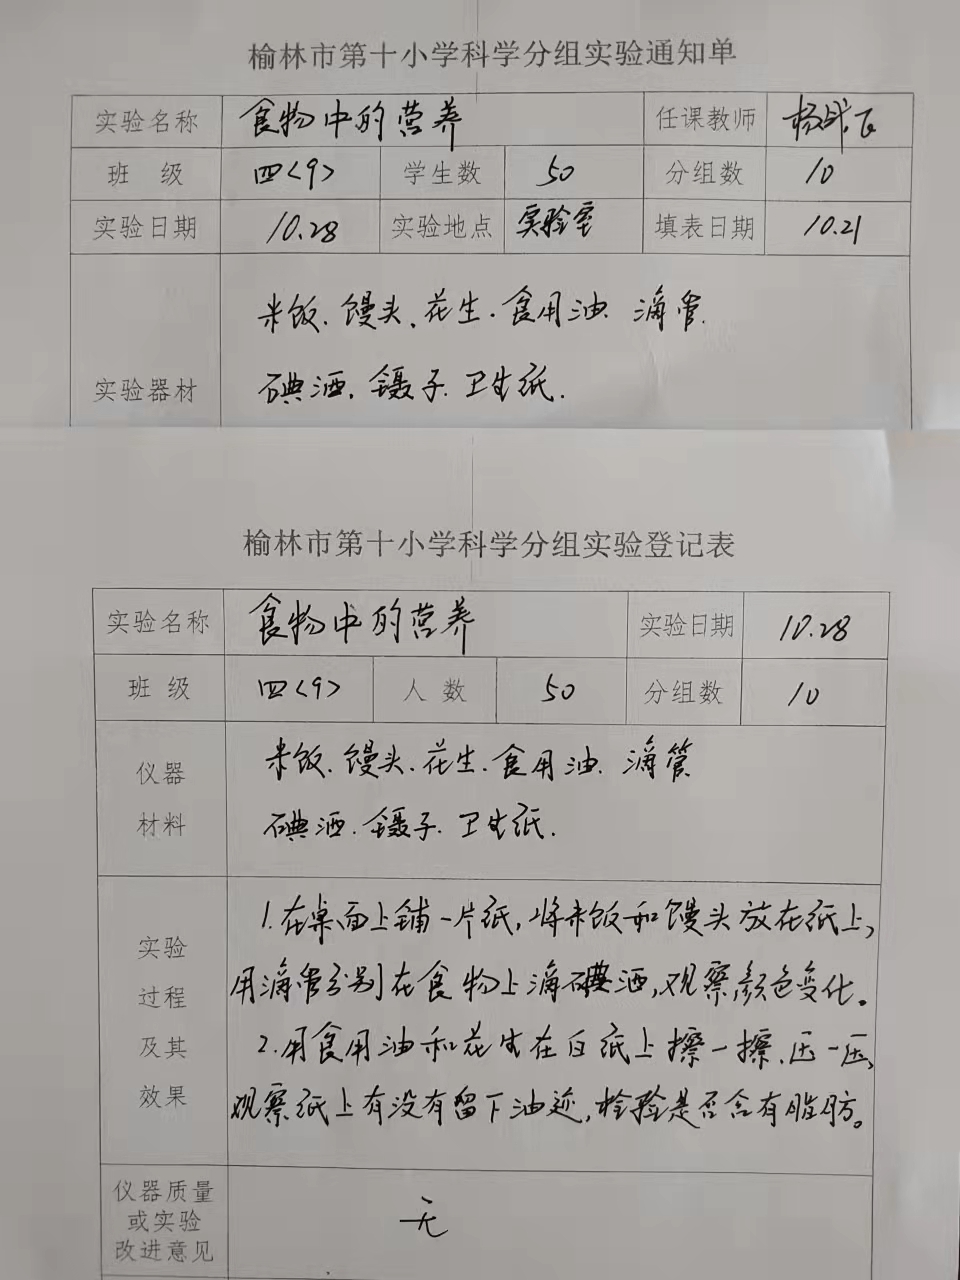 榆林市第十小学科学分组实验通知单
实验名称 食物中的营养 任课教师
班 级 四<9> 学生数 50 分组数 10
实验日期 10.28 实验地点 实验室 填表日期 10.21
米饭、馒头、花生、食用油、滴管、
实验器材 碘酒、镊子、卫生纸.
榆林市第十小学科学分组实验登记表
实验名称 食物中的营养 实验日期 10.28
班 级 四<9> 人 数 50 分组数 10
仪器 米饭、馒头、花生、食用油、滴管
材料 碘酒、镊子、卫生纸.
1.在桌面上铺一片纸,将米饭和馒头放在纸上,
实验 过程 及其 效果
用滴管分别在食物上滴碘酒,观察颜色变化。
2.用食用油和花生在白纸上擦一擦、压一压,
观察纸上有没有留下油迹,检验是否含有脂肪。
仪器质量
或实验 无
改进意见